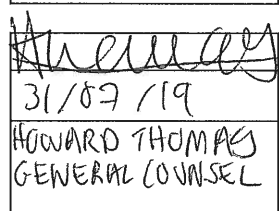 31/07/19
HOWARD THOMAS
GENERAL COUNSEL